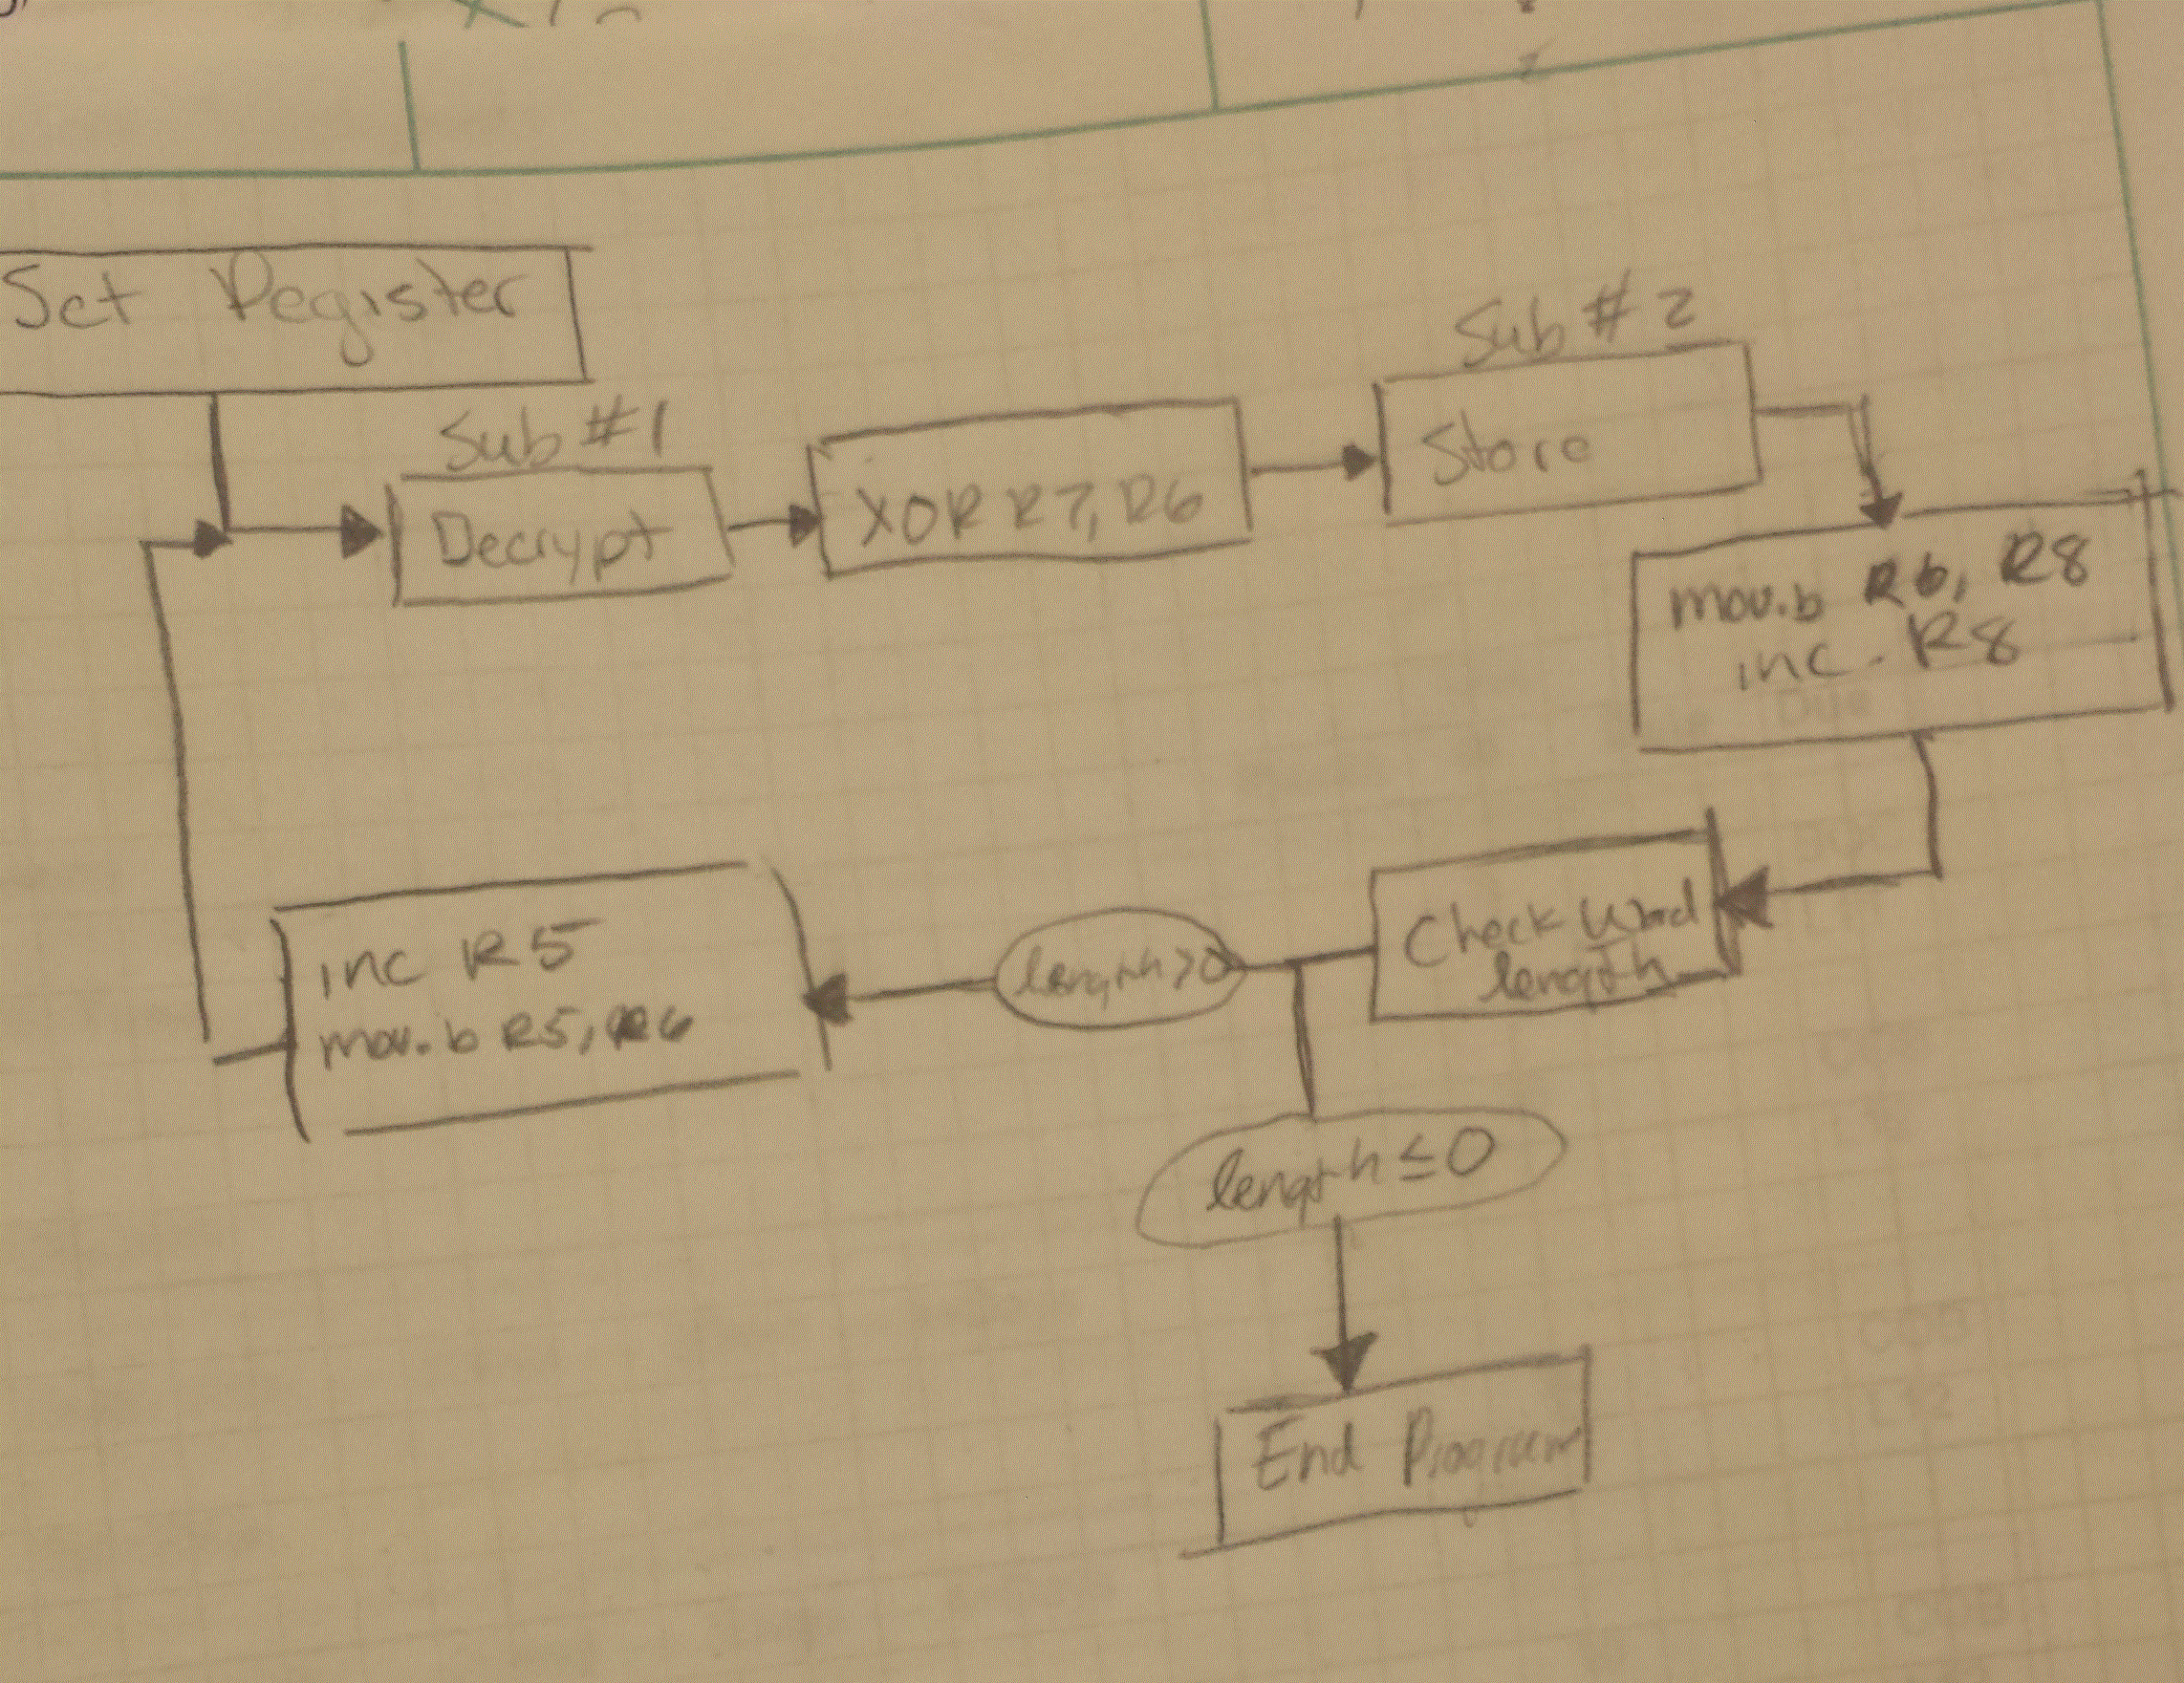 Set Register
Sub #1
Decrypt
XOR R7, R6
Sub #2
Store
mov.b R6, R8
inc. R8
Check Word
length
length >0
inc R5
mov.b R5, R6
length ≤ 0
End Program